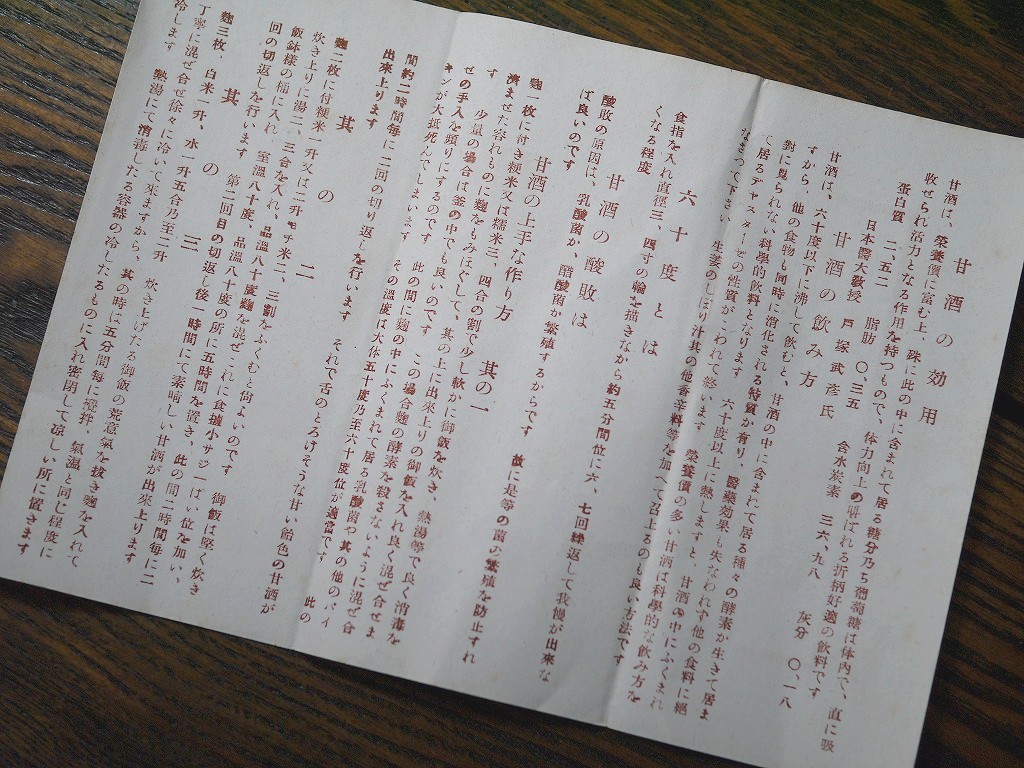 甘酒の効用
甘酒は、榮養價に富む上、殊に此の中に含まれて居る糖分乃ち葡萄糖は体內で、直に吸
收せられ活力となる作用を持つもので、体力向上の叫ばれる折柄好適の飲料です
蛋白質 二、五二 脂肪 〇、三五 含水炭素 三六、九八 灰分 〇、一八
日本醫大教授 戸塚武彦氏
甘酒の飲み方
甘酒は、六十度以下に沸して飲むと、甘酒の中に含まれて居る種々の酵素が生きて居ま
すから、他の食物も同時に消化される特質が有り、醫藥効果も失なわれず他の食料に絕
對に見られない科學的飲料となります 六十度以上に熱しますと、甘酒の中にふくまれ
て居るヂヤスターゼの性質がこわれて終います 榮養價の多い甘酒ば科學的な飲み方を
なさつて下さい 生姜のしぼり汁其の他香辛料等を加へて召上るのも良い方法です
六十度とは
食指を入れ直徑三、四寸の輪を描きながら約五分間位に六、七回繰返して我慢が出來な
くなる程度
甘酒の酸敗は
酸敗の原因は、乳酸菌か、醋酸菌か繁殖するからです 故に是等の菌の繁殖を防止すれ
ば良いのです
甘酒の上手な作り方 其の一
麹一枚に付き粳米又は糯米三、四合の割で少し軟かに御飯を炊き、熱湯等で良く消毒を
濟ませた容れものに麹をもみほぐして、其の上に出來上りの御飯を入れ良く混ぜ合せま
す 少量の場合は釜の中でも良いのです この場合麹の酵素を殺さないように混ぜ合
せの手入を頻りにするのです 此の間に麹の中にふくまれて居る乳酸菌や其の他のバイ
キンが大抵死んでしまいます その溫度は大体五十度乃至六十度位が適當です 此の
間約二時間每に二回の切り返しを行います それで舌のとろけそうな甘い飴色の甘酒が
出來上ります
其の二
麹二枚に付粳米一升又は二升モチ米二、三割をふくむと尙よいのです 御飯は堅く炊き
炊き上りに湯二、三合を入れ、品溫八十度麹を混ぜこれに食塩小サジ一ぱい位を加い、
飯鉢樣の桶に入れ 室溫八十度、品溫八十度の所に五時間を置き、此の間二時間每に二
回の切返しを行います 第二回目の切返し後一時間にて素晴しい甘酒が出來上ります
其の三
麹三枚、白米一升、水一升五合乃至二升 炊き上げたる御飯の荒意氣を拔き麹を入れて
丁寧に混ぜ合せ徐々に冷いて來ますから、其の時は五分間每に攪拌、氣溫と同じ程度に
冷します 熱湯にて消毒したる容器の冷したるものに入れ密閉して凉しい所に置きます